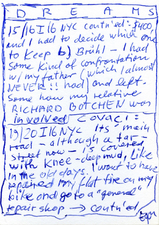 DREAMS
15/16 II 16 NYC contn'd: $400,
and I had to decide which one
to keep b) Brühl - I had
some kind of confrontation
w/my father (which I almost
NEVER!! had) and left.
Some how my relative
RICHARD BOTCHEN was
involved COVACI:
19/20 II 16 NYC Its "main
road - although a
street now - is covered
with Knee-deep mud, like
in the old days. I want to have
repaired my flat tire on my
bike and go to a "general"
repair shop → contn'd